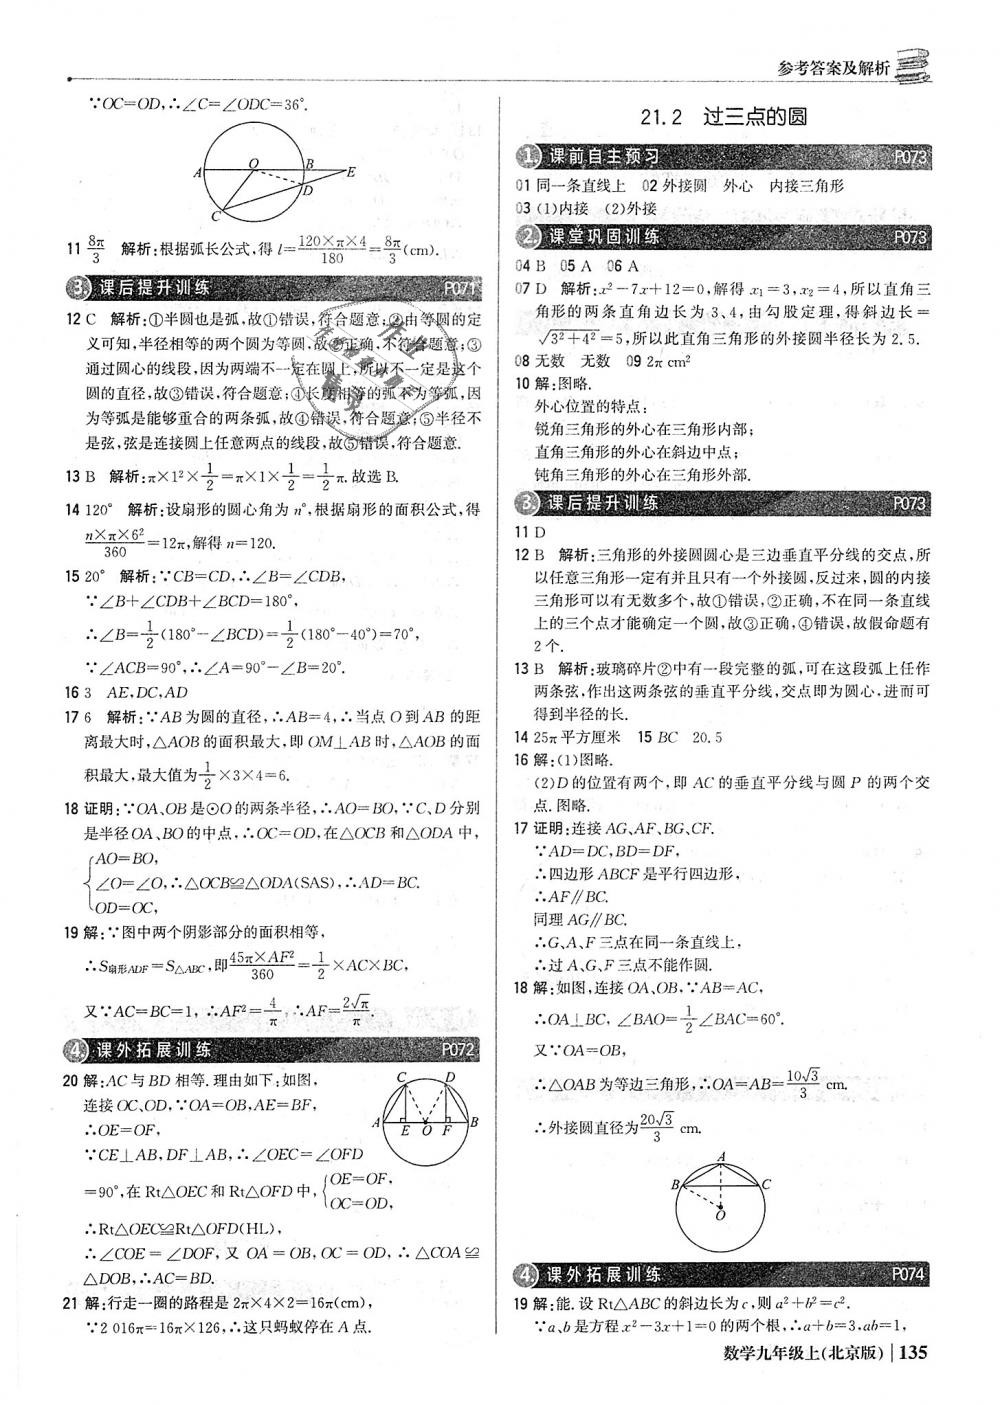 参考答案及解析
∵OC=OD,∴∠C=∠ODC=36°.
A O B E
D
C
11 8π/3 解析:根据弧长公式,得 l=120×π×4/180=8π/3(cm).
3. 课后提升训练 P071
12 C 解析:①半圆也是弧,故①错误,符合题意;②由等圆的定
义可知,半径相等的两个圆为等圆,故②正确,不符合题意;③
通过圆心的线段,因为两端不一定在圆上,所以不一定是这个
圆的直径,故③错误,符合题意;④长度相等的弧不为等弧,因
为等弧是能够重合的两条弧,故④错误,符合题意;⑤半径不
是弦,弦是连接圆上任意两点的线段,故⑤错误,符合题意.
13 B 解析:π×1²×1/2=π×1×1/2=1/2π.故选 B.
14 120° 解析:设扇形的圆心角为 n°,根据扇形的面积公式,得
n×π×6²/360=12π,解得 n=120.
15 20° 解析:∵CB=CD,∴∠B=∠CDB,
∵∠B+∠CDB+∠BCD=180°,
∴∠B=1/2(180°-∠BCD)=1/2(180°-40°)=70°,
∵∠ACB=90°,∴∠A=90°-∠B=20°.
16 3 AE,DC,AD
17 6 解析:∵AB为圆的直径,∴AB=4,∴当点 O 到 AB 的距
离最大时,△AOB 的面积最大,即 OM⊥AB 时,△AOB 的面
积最大,最大值为1/2×3×4=6.
18 证明:∵OA、OB 是⊙O 的两条半径,∴AO=BO,∵C、D 分别
是半径 OA、BO 的中点,∴OC=OD,在△OCB 和△ODA 中,
AO=BO,
∠O=∠O,∴△OCB≌△ODA(SAS),∴AD=BC.
OD=OC,
19 解:∵图中两个阴影部分的面积相等,
∴S扇形ADF=S△ABC,即45π×AF²/360=1/2×AC×BC,
又∵AC=BC=1,∴AF²=4/π,∴AF=2√π/π.
4. 课外拓展训练 P072
20 解:AC 与 BD 相等.理由如下:如图,
连接 OC、OD,∵OA=OB,AE=BF,
∴OE=OF,
∵CE⊥AB,DF⊥AB,∴∠OEC=∠OFD
=90°,在 Rt△OEC 和 Rt△OFD 中,{OE=OF,
OC=OD,
C D
A E O F B
∴Rt△OEC≌Rt△OFD(HL),
∴∠COE=∠DOF,又 OA=OB,OC=OD,∴△COA≌
△DOB,∴AC=BD.
21 解:行走一圈的路程是 2π×4×2=16π(cm),
∵2 016π=16π×126,∴这只蚂蚁停在 A 点.
21.2 过三点的圆
1. 课前自主预习 P073
01 同一条直线上 02 外接圆 外心 内接三角形
03 (1)内接 (2)外接
2. 课堂巩固训练 P073
04 B 05 A 06 A
07 D 解析:x²-7x+12=0,解得 x₁=3,x₂=4,所以直角三
角形的两条直角边长为 3、4,由勾股定理,得斜边长=
√3²+4²=5,所以此直角三角形的外接圆半径长为 2.5.
08 无数 无数 09 2π cm²
10 解:图略.
外心位置的特点:
锐角三角形的外心在三角形内部;
直角三角形的外心在斜边中点;
钝角三角形的外心在三角形外部.
3. 课后提升训练 P073
11 D
12 B 解析:三角形的外接圆圆心是三边垂直平分线的交点,所
以任意三角形一定有并且只有一个外接圆,反过来,圆的内接
三角形可以有无数多个,故①错误,②正确,不在同一条直线
上的三个点才能确定一个圆,故③正确,④错误,故假命题有
2 个.
13 B 解析:玻璃碎片②中有一段完整的弧,可在这段弧上任作
两条弦,作出这两条弦的垂直平分线,交点即为圆心,进而可
得到半径的长.
14 25π 平方厘米 15 BC 20.5
16 解:(1)图略.
(2)D 的位置有两个,即 AC 的垂直平分线与圆 P 的两个交
点.图略.
17 证明:连接 AG、AF、BG、CF.
∵AD=DC,BD=DF,
∴四边形 ABCF 是平行四边形,
∴AF∥BC.
同理 AG∥BC.
∴G、A、F 三点在同一条直线上,
∴过 A、G、F 三点不能作圆.
18 解:如图,连接 OA、OB,∵AB=AC,
∴OA⊥BC,∠BAO=1/2∠BAC=60°.
又∵OA=OB,
∴△OAB 为等边三角形,∴OA=AB=10√3/3 cm.
∴外接圆直径为20√3/3 cm.
A
B C
O
4. 课外拓展训练 P074
19 解:能.设 Rt△ABC 的斜边长为 c,则 a²+b²=c².
∵a、b 是方程 x²-3x+1=0 的两个根,∴a+b=3,ab=1,
数学九年级上(北京版) | 135